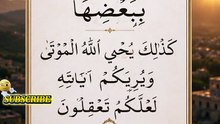 بِبَعْضِهَا
كَذَٰلِكَ يُحْيِ اللّٰهُ الْمَوْتَىٰ
وَيُرِيكُمْ اٰيَاتِهِ
لَعَلَّكُمْ تَعْقِلُونَ
SUBSCRIBE